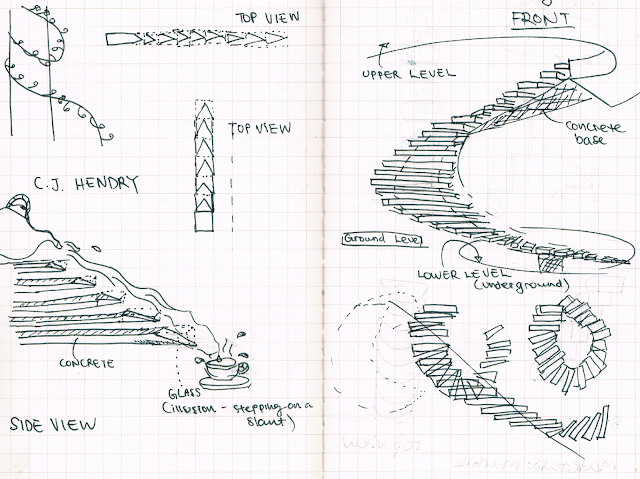 TOP VIEW
TOP VIEW
C.J. HENDRY
CONCRETE
GLASS
(illusion - stepping on a
slant)
SIDE VIEW
FRONT
UPPER LEVEL
CONCRETE
base
Ground Level
LOWER LEVEL
(underground)